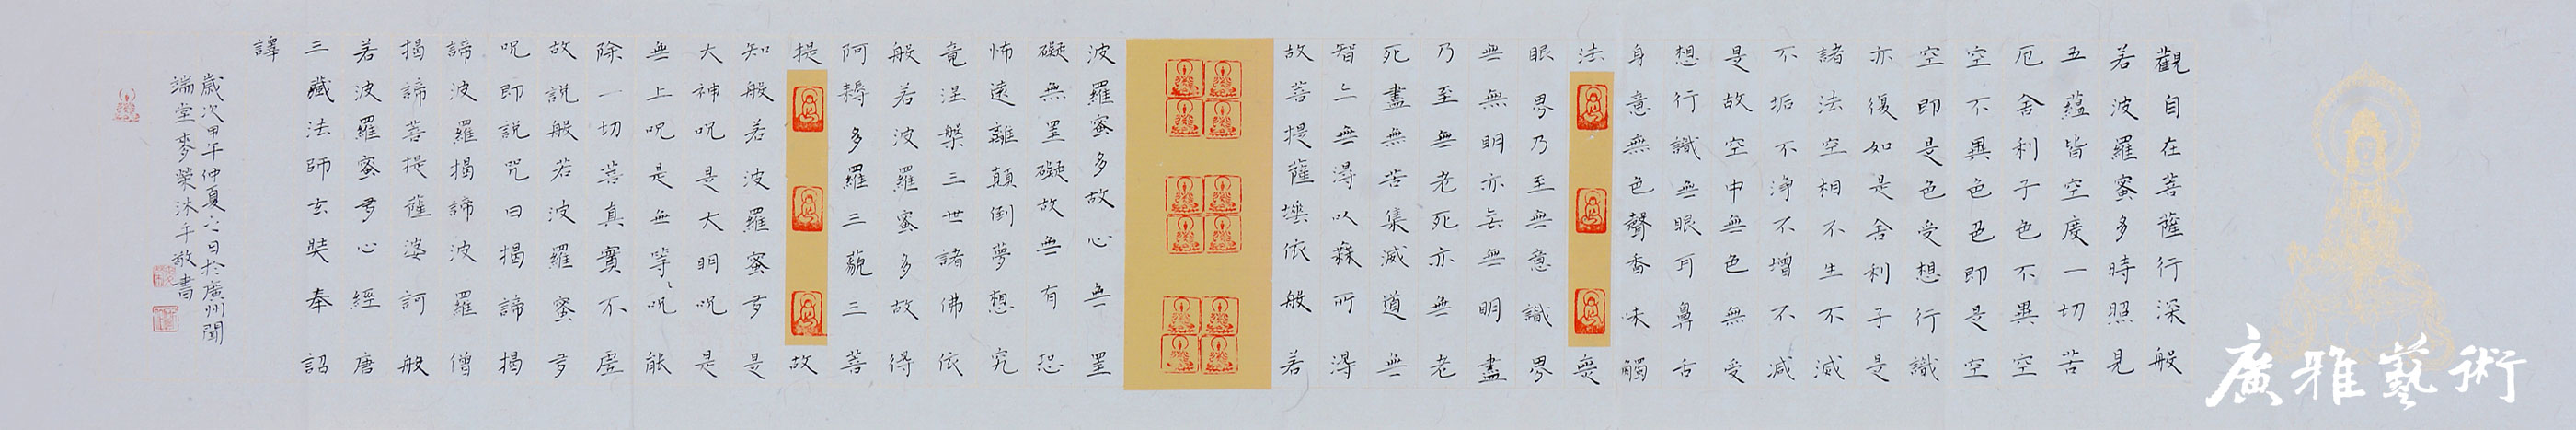 觀自在菩薩行深般
若波羅蜜多時照見
五蘊皆空度一切苦
厄舍利子色不異空
空不異色色即是空
空即是色受想行識
亦復如是舍利子是
諸法空相不生不滅
不垢不淨不增不減
是故空中無色無受
想行識無眼耳鼻舌
身意無色聲香味觸
法無
眼界乃至無意識界
無無明亦無無明盡
乃至無老死亦無老
死盡無苦集滅道無
智亦無得以無所得
故菩提薩埵依般若
波羅蜜多故心無罣
礙無罣礙故無有恐
怖遠離顛倒夢想究
竟涅槃三世諸佛依
般若波羅蜜多故得
阿耨多羅三藐三菩
提故
知般若波羅蜜多是
大神咒是大明咒是
無上咒是無等々咒能
除一切苦真實不虛
故說般若波羅蜜多
咒即說咒曰揭諦揭
諦波羅揭諦波羅僧
揭諦菩提薩婆訶般
若波羅蜜多心經唐
三藏法師玄奘奉詔
譯
歲次甲午仲夏之日於廣州聞
端堂麥榮沐手敬書
廣雅藝術